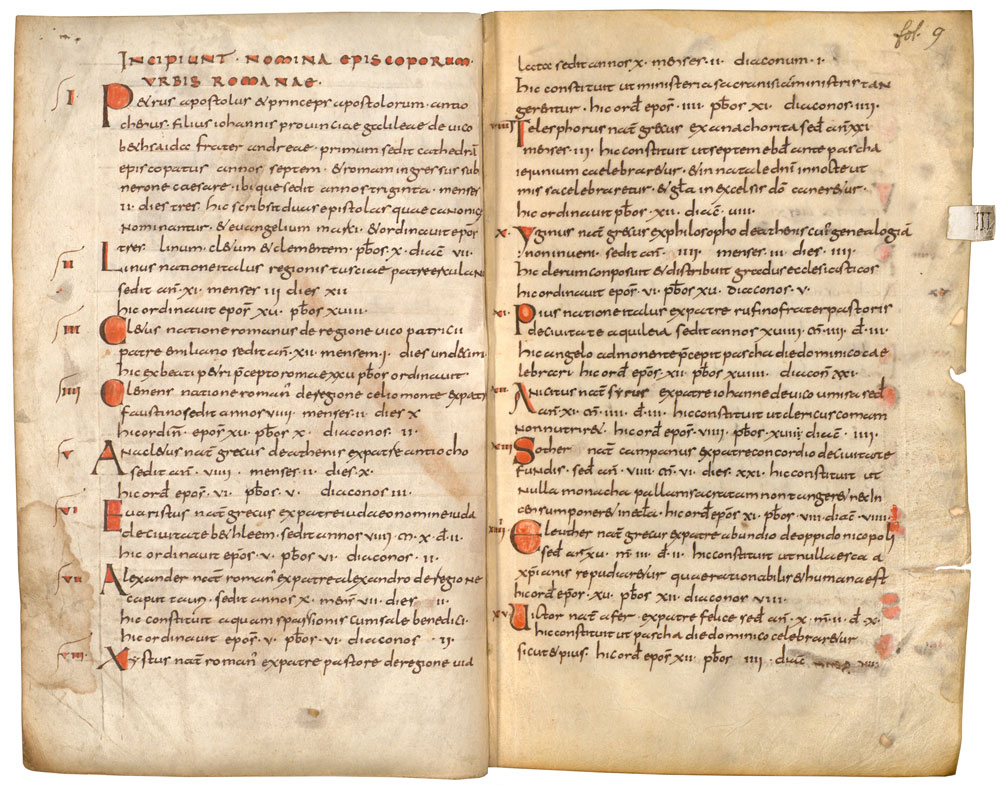 INCIPIUNT · NOMINA EPISCOPORUM ·
URBIS ROMANAE ·
I· P&rus apostolus & princeps apostolorum · antio
chenus · filius iohannis provinciae galileae de vico
b&hsaida frater andreae · primum sedit cathedrā
episcopatus annos septem · & romam ingressus sub
nerone caesare · ibique sedit annos triginta · menses
II · dies tres · hic scribsit duas epistolas quae canonice
nominantur · & evangelium marci · & ordinavit epōs
tres · linum · cl&um & clementem · pb̄os · X · diacō · VII ·
II Linus natione italus regionis tusciae patre
sedit an̄ · XI · menses III dies XII
hic ordinavit epōs · XV · pb̄os · XVIII ·
III Cl&us natione romanus de regione vico patricii
patre emiliano sedit an̄ · XII · mensem · I · dies undecim
hic ex beati p&ri p̄cepto romae XXV pb̄os ordinavit
IIII Clemens natione roman̄ de regione celio monte ex patre
faustino sedit annos VIIII · menses · II · dies X
hic ordin̄ · epōs · XV · pb̄os · X · diaconos · II ·
V· Anacl&us nat̄ grecus de athenis ex patre antiocho
sedit an̄ · VIIII · menses · II · dies · X ·
hic ord̄ epōs · VI · pb̄os · V · diaconos III ·
VI· Evaristus nat̄ grecus ex patre iuda eo nomine iuda
de civitate b&hleem · sedit annos VIIII · m̄ · X · d̄ · II ·
hic ordinavit epōs · V · pb̄os · VI · diaconos · II ·
VII· Alexander nat̄ roman̄ ex patre alexandro de regione
caput tauri · sedit annos X · mens̄ · VII · dies II
hic constituit aquam spassionis cum sale benedici ·
hic ordinavit epōs · V · pb̄os · VI · diaconos II ·
VIII· Xystus nat̄ roman̄ ex patre pastore de regione via
fol. 9
lata sedit annos X · menses · II · diaconum · I ·
hic constituit ut ministeria sacra nisi a ministris tan
gerentur · hic ord̄ epōs · IIII · pb̄os XI · diaconos · IIII ·
VIIII Telesphorus nat̄ grecus ex anachorita sed̄ an̄ XXI
menses · III · hic constituit ut septem ebd̄ ante pascha
ieiunium caelebrar&ur · & in natale dn̄i in nocte ut
missa celebraretur · & gl̄a in excelsis dō caner&ur ·
hic ordinavit pb̄os · XII · diacō · VIII ·
X· Yginus nat̄ grecus ex philosopho de athenis cuius genealogia
non inveni · sedit an̄ · IIII · menses · III · dies · IIII ·
hic clerum composuit & distribuit gradus ecclesiasticos
hic ordinavit epōs · VI · pb̄os XV · diaconos · V ·
XI· Pius natione italus ex patre rufino frater pastoris
de civitate aquileia sedit annos XVIIII · m̄ · IIII d̄ · III ·
hic angelo admonente p̄cepit pascha die dominico cae
lebrari hic ord̄ epōs · XII · pb̄os · XVIIII · diacon̄ XXI ·
XII· Anicitus nat̄ syrus ex patre iohanne de vico umisa sed̄
an̄ · XI · m̄ · IIII · d̄ · III · hic constituit ut clericus comam
non nutrir& · hic ord̄ epōs · VIIII · pb̄os · XVIIII · diacō · IIII ·
XIII Sother nat̄ campanus ex patre concordio de civitate
fundis · sed̄ an̄ · VIII · m̄ · VI · dies · XXI · hic constituit ut
nulla monacha pallam sacratam non tanger& nec in
censum poner& in ecl̄a · hic ord̄ epōs XI · pb̄os · VIII · diacō · VIIII ·
XIIII Eleuther nat̄ grecus ex patre abundio de oppido nicopoli
sed̄ an̄ XV · m̄ · III · d̄ · II · hic constituit ut nulla esca a
xp̄ianis repudiar&ur quae rationabilis & humana est
hic ord̄ epōs · XV · pb̄os XII · diaconos VIII ·
XV Victor nat̄ afer ex patre felice sed̄ an̄ · X · m̄ · II · d̄ · X ·
hic constituit ut pascha die dominico celebrar&ur
sicut & pius · hic ord̄ epōs · XII · pb̄os IIII · diacō
III